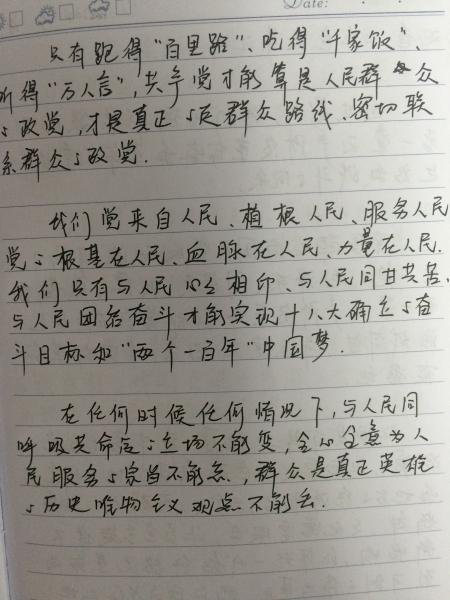 Date:
只有跑得“百里路”、吃得“千家饭”、
听得“万人言”，共产党才能算是人民群众
的政党，才是真正的走群众路线、密切联
系群众的政党.
我们党来自人民、植根人民、服务人民
党的根基在人民、血脉在人民、力量在人民.
我们只有与人民心心相印、与人民同甘共苦、
与人民团结奋斗才能实现十八大确立的奋
斗目标和“两个一百年”中国梦.
在任何时候任何情况下，与人民同
呼吸共命运的立场不能变，全心全意为人
民服务的宗旨不能忘，群众是真正英雄
的历史唯物主义观点不能丢.